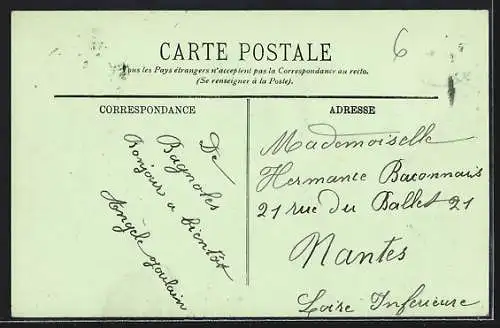 6
CARTE POSTALE
Tous les Pays étrangers n'acceptent pas la Correspondance au recto.
(Se renseigner à la Poste).
CORRESPONDANCE
De
Bagnoles
Bonjour a bientot
Angèle Goulain
ADRESSE
Mademoiselle
Hermance Baconnais
21 rue du Ballet 21
Nantes
Loire Inferieure